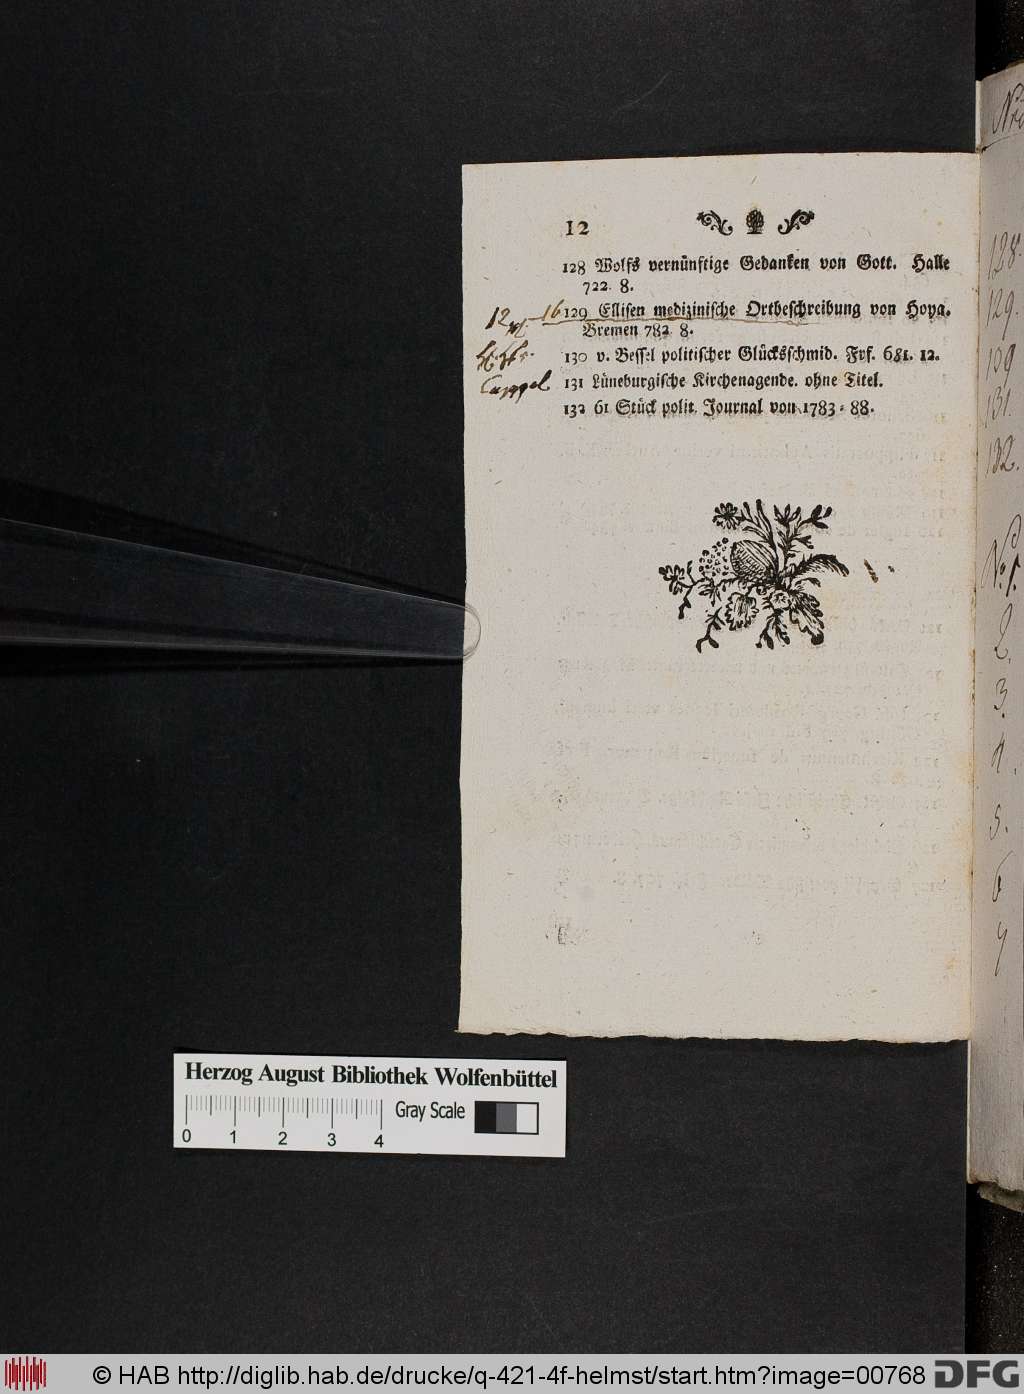 12
128 Wolfs vernünftige Gedanken von Gott. Halle
722. 8.
16 129 Ellisen medizinische Ortbeschreibung von Hoya.
Bremen 782 8.
130 v. Bessel politischer Glücksschmid. Frf. 681. 12.
131 Lüneburgische Kirchenagende. ohne Titel.
132 61 Stück polit. Journal von 1783-88.
12
Cappel
128.
129.
129
131.
132.
No. 1.
2.
3.
4.
5.
6
7
Herzog August Bibliothek Wolfenbüttel
Gray Scale
0 1 2 3 4
© HAB http://diglib.hab.de/drucke/q-421-4f-helmst/start.htm?image=00768
DFG